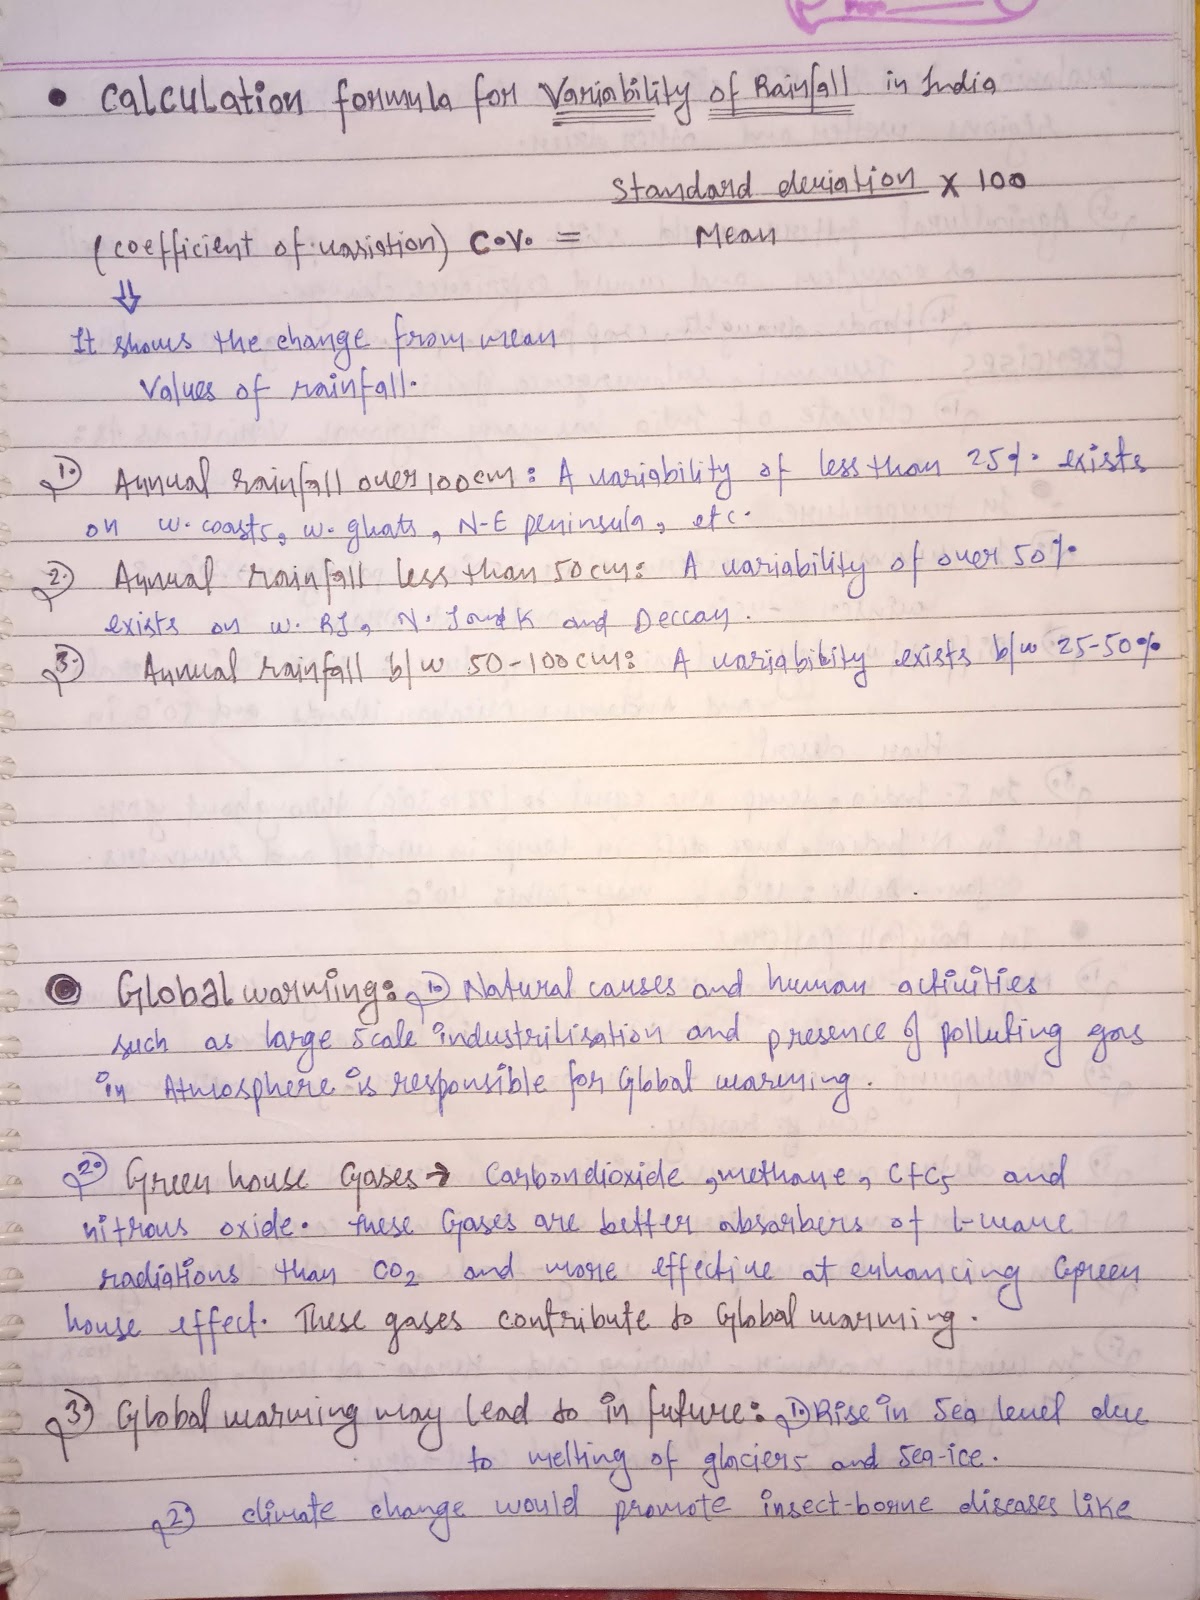 Page
• Calculation formula for Variability of Rainfall in India
Standard deviation x 100
(coefficient of variation) C.V. = Mean
⇓
It shows the change from mean
Values of rainfall.
1. Annual rainfall over 100cm: A variability of less than 25%. exists
on w. coasts, w. ghats, N-E peninsula, etc.
2. Annual rainfall less than 50cm: A variability of over 50%
exists on w. RJ, N. J and K and Deccan.
3. Annual rainfall b/w 50-100cm: A variability exists b/w 25-50%
Global warming: 1. Natural causes and human activities
such as large scale industrilisation and presence of polluting gas
in Atmosphere is responsible for Global warming.
2. Green house Gases → Carbondioxide, methane, CFCs and
nitrous oxide. these Gases are better absorbers of L-wave
radiations than CO2 and more effective at enhancing Green
house effect. These gases contribute to Global warming.
3) Global warming may lead to in future: 1. Rise in Sea level due
to melting of glaciers and sea-ice.
2) climate change would promote insect-borne diseases like